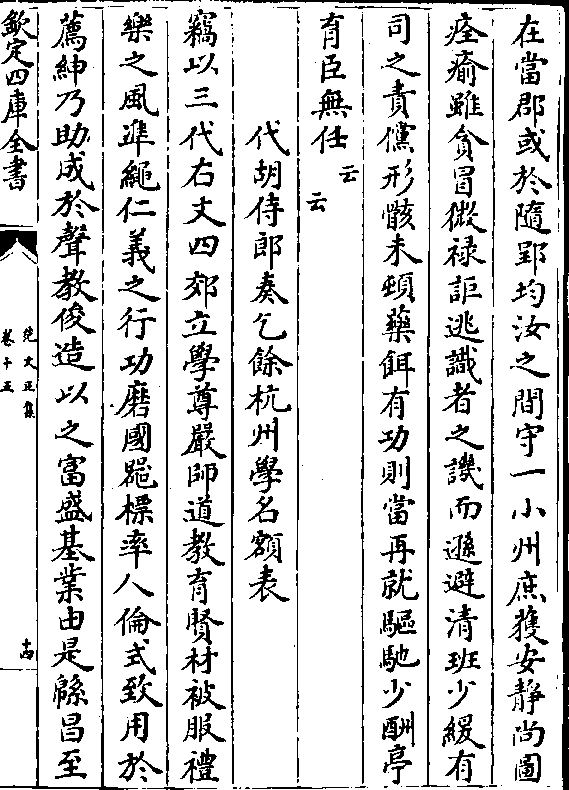 在當郡或於隨郢均汝之間守一小州庶獲安靜尚圖
痊瘉雖貪冒微禄詎逃識者之譏而遜避清班少緩有
司之責儻形骸未頓藥餌有功則當再就驅馳少酬亭
育臣無任云云
代胡侍郎奏乞餘杭州學名額表
竊以三代右文四郊立學尊嚴師道教育賢材被服禮
樂之風準繩仁義之行功磨國器標率人倫式致用於
薦紳乃助成於聲教俊造以之富盛基業由是緜昌至
欽定四庫全書
范文正集
卷十五
十四